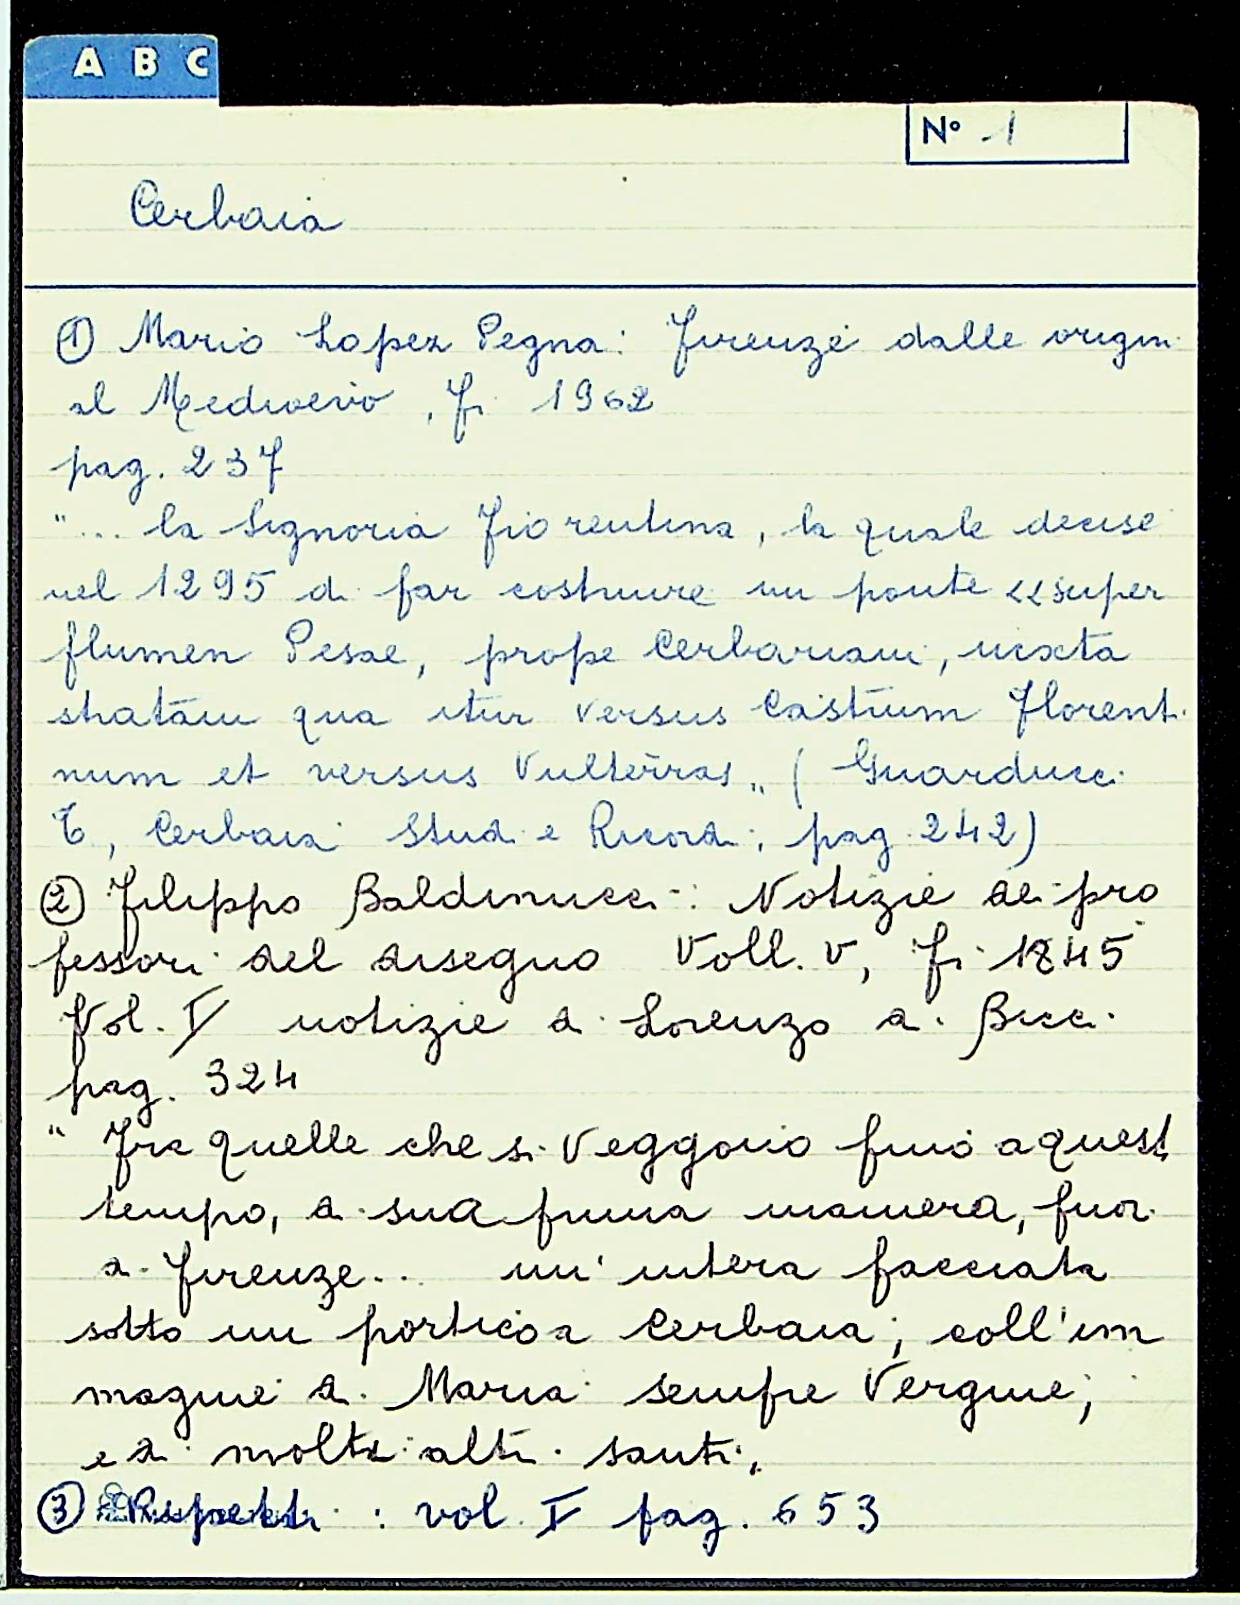 A B C
N° 1
Cerbaia
① Mario Lopez Pegna: Firenze dalle origini
al Medioevo, Fi 1962
pag. 237
"... la Signoria Fiorentina, la quale decise
nel 1295 di far costruire un ponte «super
flumen Pesae, prope Cerbariam, iuxta
stratam qua itur versus Castrum Florenti
num et versus Vulterras" ( Guarducci
T, Cerbaia Studi e Ricordi, pag. 242)
② Filippo Baldinucci: Notizie dei pro
fessori del disegno Voll. V, Fi 1845
Vol. I notizie di Lorenzo di Bicci
pag. 324
" Fra quelle che si veggono fino a questi
tempo, di sua prima maniera, fuori
di Firenze... un'intera facciata
sotto un portico a Cerbaia; coll'im
magine di Maria sempre Vergine,
e di molti altri santi"
③ Repetti: vol. I pag. 653